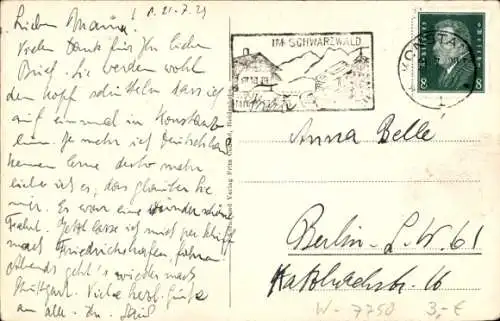 Lieber Mama! d. 21.7.29
Vielen Dank für Ihr lieben
Brief. Sie werden wohl
den Kopf schütteln dass ich
auf einmal in Konstanz
bin. Je mehr ich Deutschland
kennen lerne desto mehr
liebe ich es, das glauben Sie
mir. Es war eine wunderschöne
Fahrt. Jetzt lasse ich mich per Schiff
nach Friedrichshafen fahren
Abends geht's wieder nach
Stuttgart. Viele herzl. Grüße
an alle. Ihr
IM SCHWARZWALD
KONSTANZ
1
8 8
Anna Bellé
Berlin - S.W. 61
Katzbachstr. 16
W-7750 3,-€